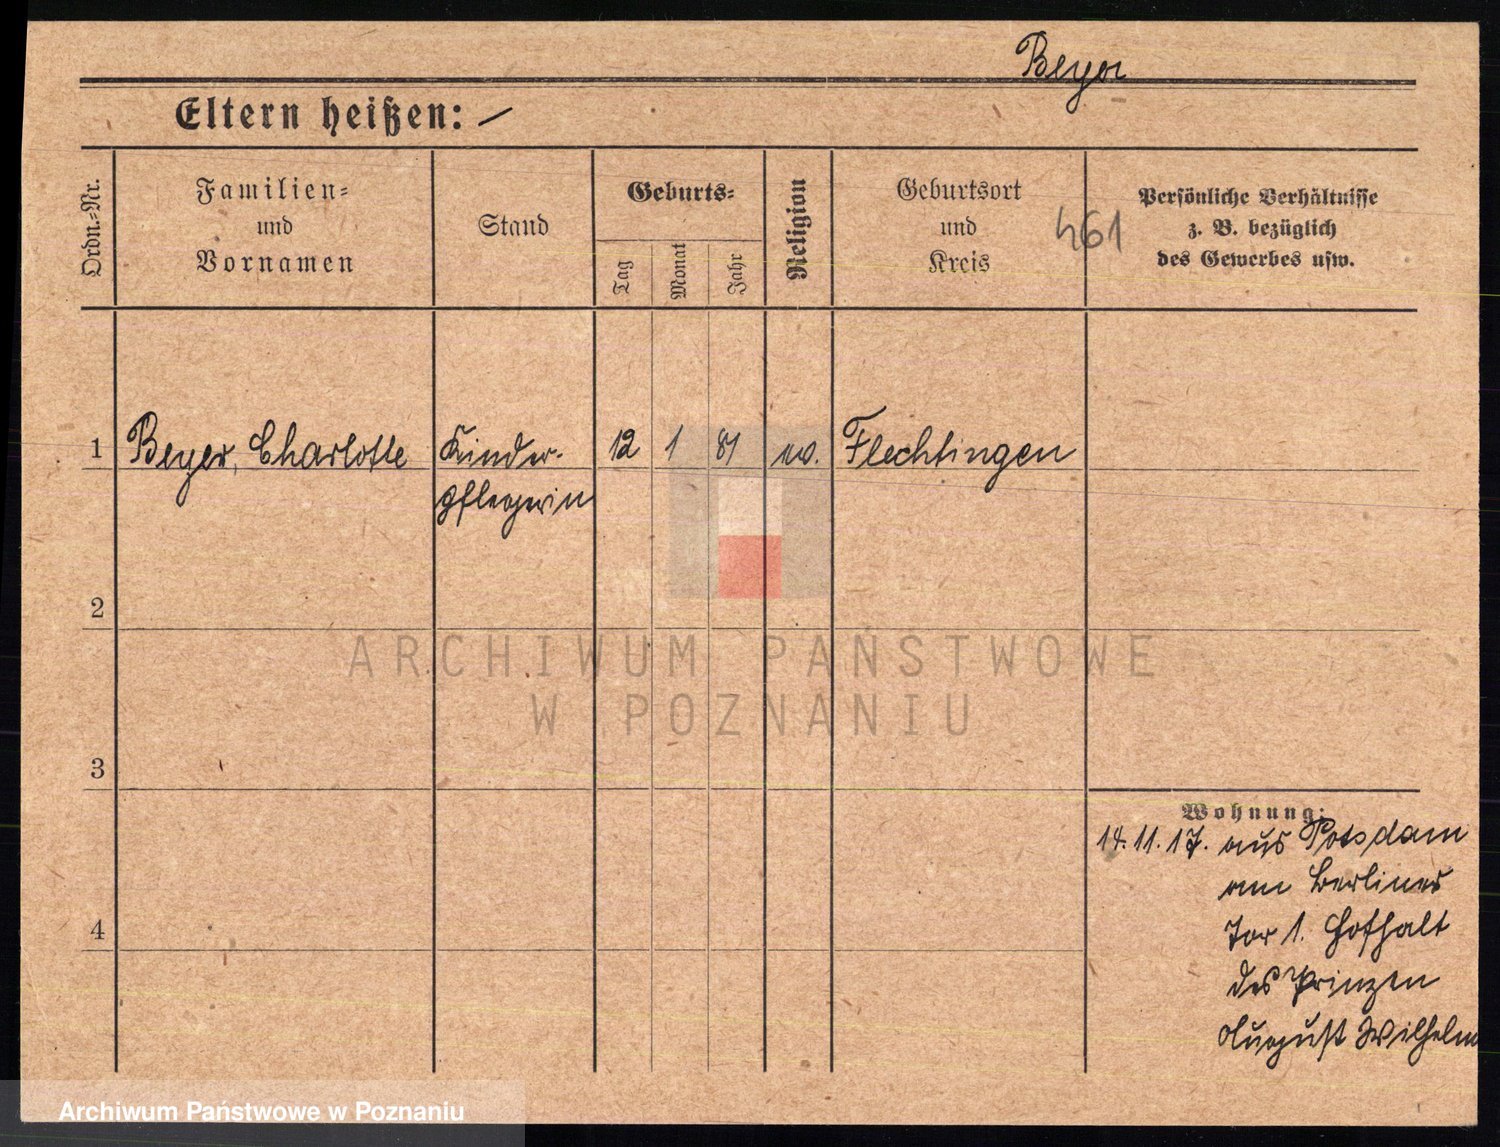 Beyer
Eltern heißen: —
Ordn.-Nr.
Familien-
und
Vornamen
Stand
Geburts-
Tag
Monat
Jahr
Religion
Geburtsort
und
Kreis
461
Persönliche Verhältnisse
z. B. bezüglich
des Gewerbes usw.
1 Beyer, Charlotte Kinder- 12 1 81 ev. Flechtingen
pflegerin
2
ARCHIWUM PAŃSTWOWE
W POZNANIU
3
Wohnung:
14.11.17. aus Potsdam
am Berliner
Tor 1. Hofhalt
des Prinzen
August Wilhelm
4
Archiwum Państwowe w Poznaniu